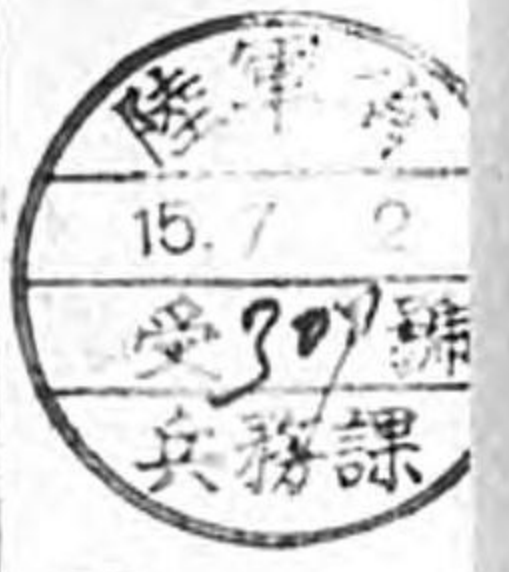 陸軍省
15.7.2
受309號
兵務課